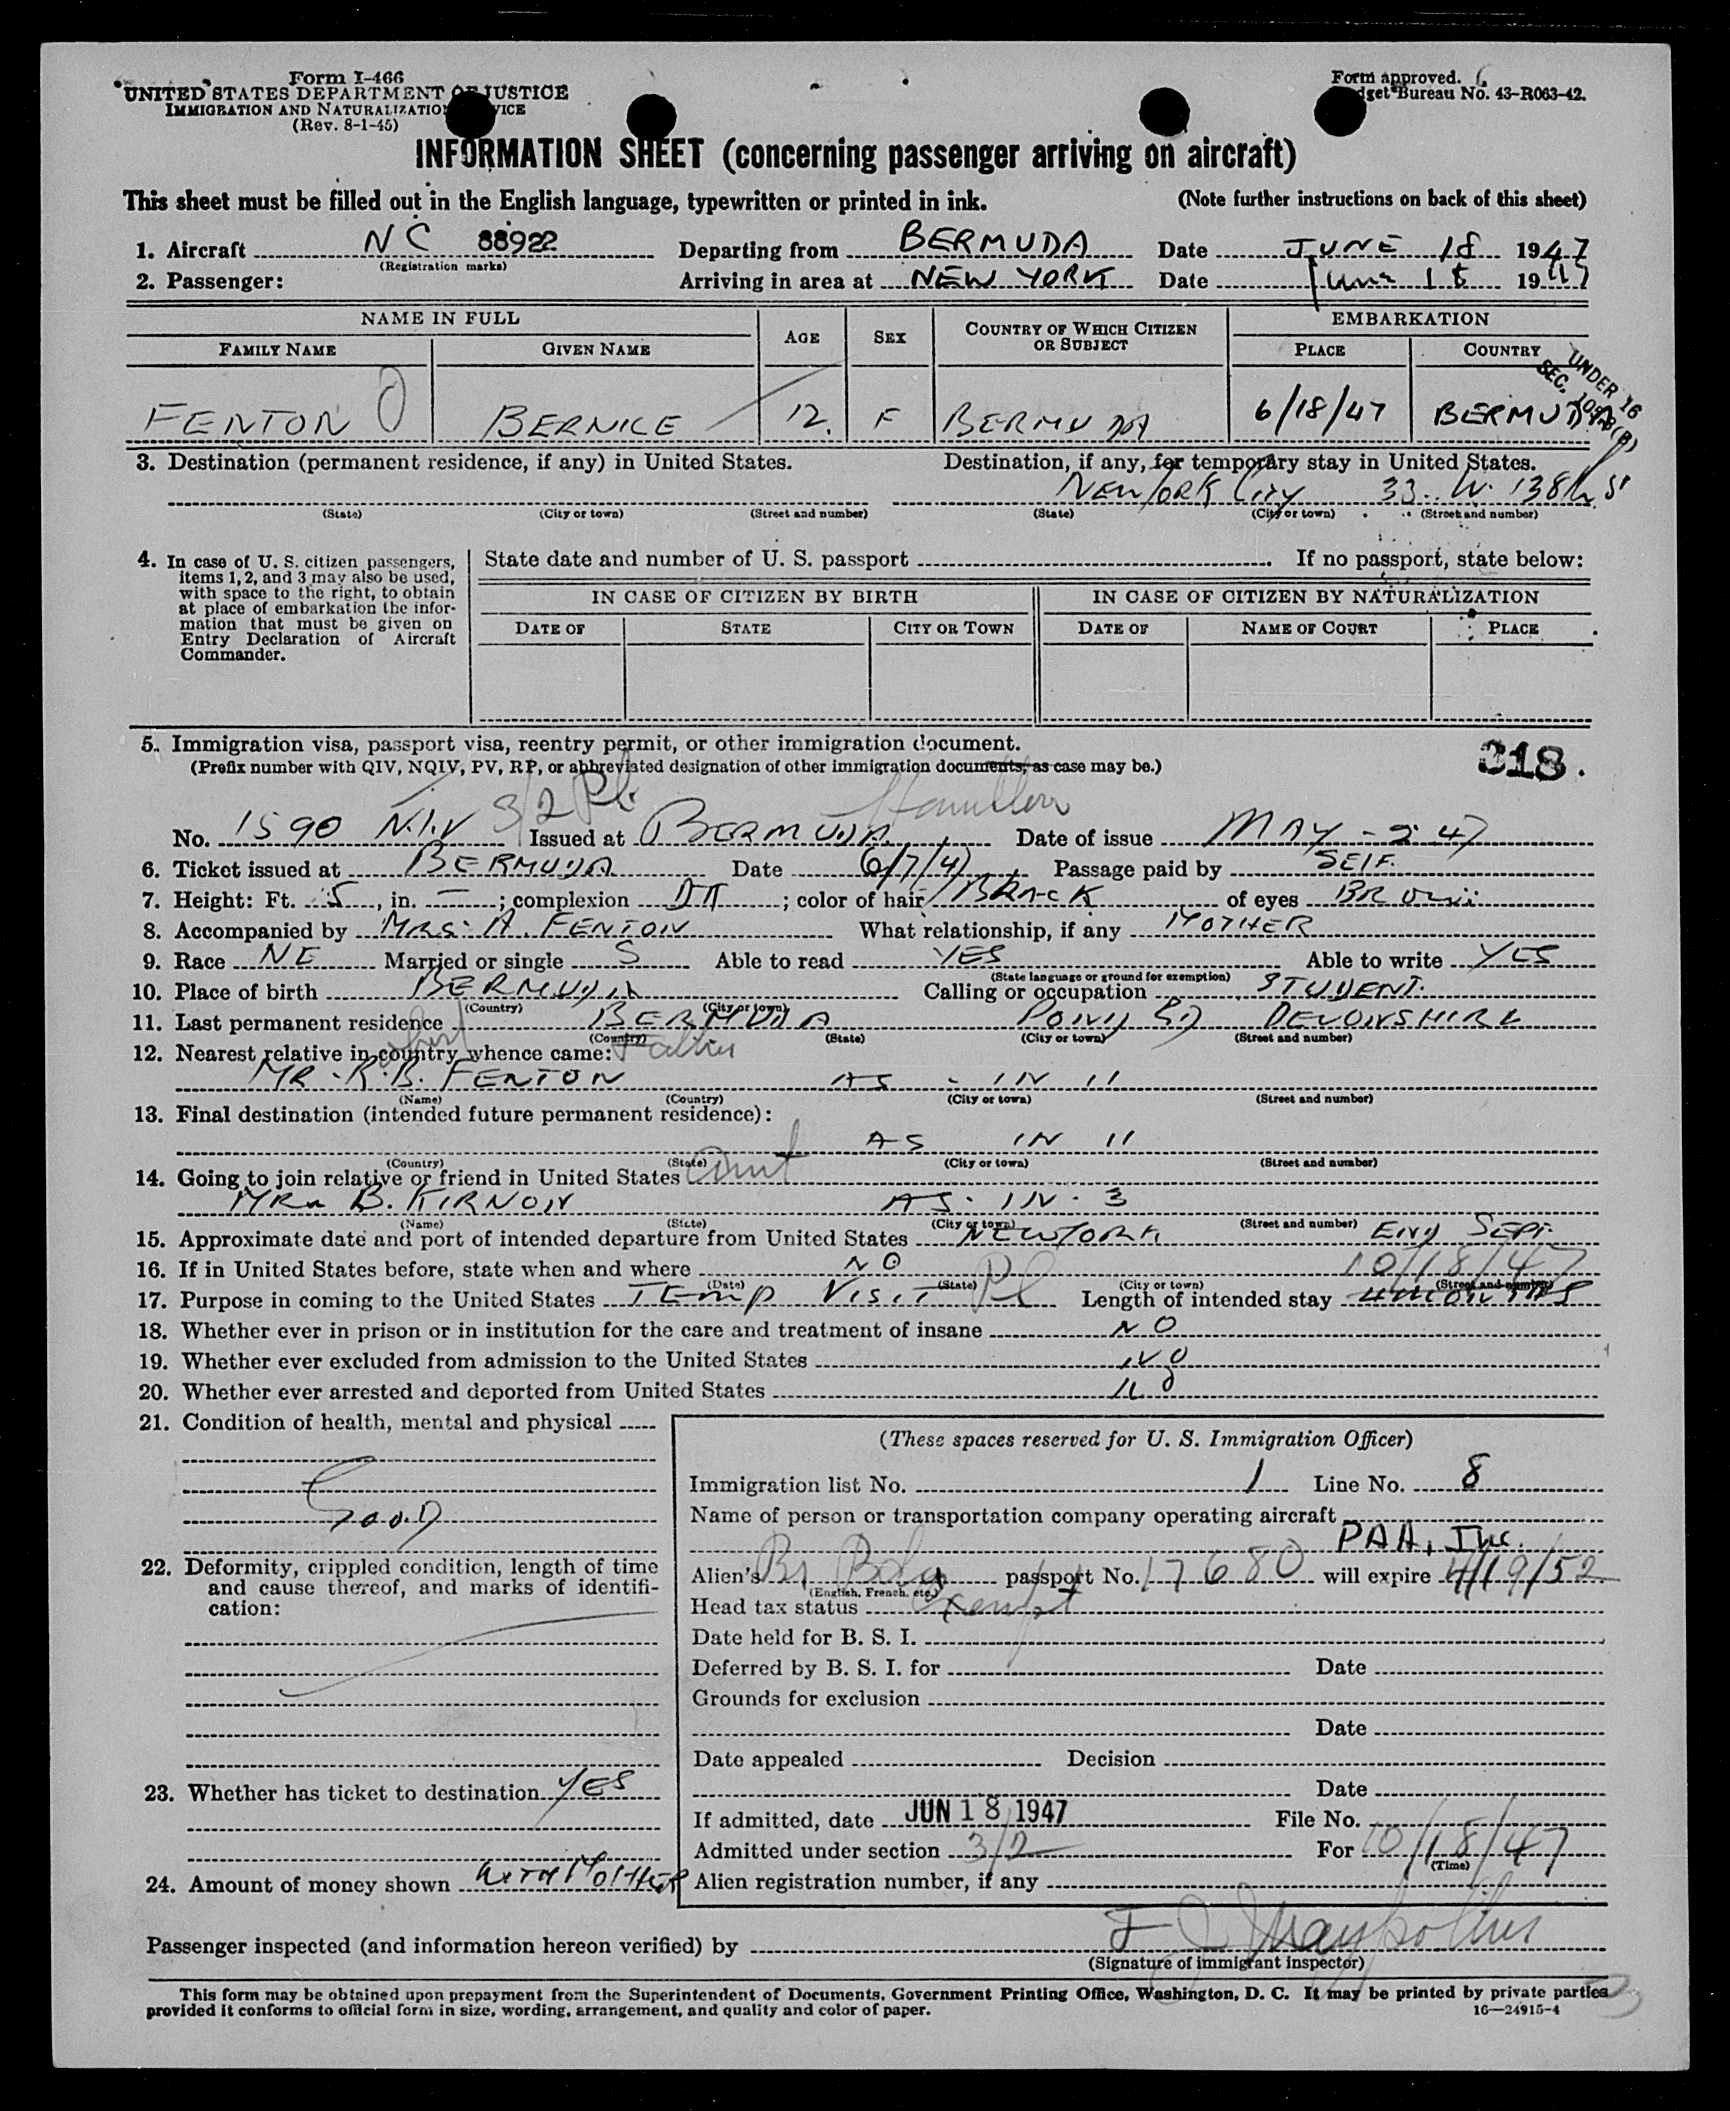 Form I-466
UNITED STATES DEPARTMENT OF JUSTICE
IMMIGRATION AND NATURALIZATION SERVICE
(Rev. 8-1-45)
Form approved.
Budget Bureau No. 43-R063-42.
INFORMATION SHEET (concerning passenger arriving on aircraft)
This sheet must be filled out in the English language, typewritten or printed in ink. (Note further instructions on back of this sheet)
1. Aircraft NC 88922 Departing from BERMUDA Date JUNE 18 1947
(Registration marks)
2. Passenger: Arriving in area at NEW YORK Date June 18 1947
NAME IN FULL AGE SEX COUNTRY OF WHICH CITIZEN OR SUBJECT EMBARKATION
FAMILY NAME GIVEN NAME PLACE COUNTRY
UNDER 16
SEC.
FENTON BERNICE 12. F BERMUDA 6/18/47 BERMUDA
3. Destination (permanent residence, if any) in United States. Destination, if any, for temporary stay in United States.
NEW YORK City 33 W. 138th St
(State) (City or town) (Street and number) (State) (City or town) (Street and number)
4. In case of U. S. citizen passengers, items 1, 2, and 3 may also be used, with space to the right, to obtain at place of embarkation the information that must be given on Entry Declaration of Aircraft Commander.
State date and number of U. S. passport If no passport, state below:
IN CASE OF CITIZEN BY BIRTH IN CASE OF CITIZEN BY NATURALIZATION
DATE OF STATE CITY OR TOWN DATE OF NAME OF COURT PLACE
5. Immigration visa, passport visa, reentry permit, or other immigration document.
(Prefix number with QIV, NQIV, PV, RP, or abbreviated designation of other immigration documents, as case may be.)
318.
3/2 Pl. Hamilton
No. 1590 N.I.V Issued at BERMUDA. Date of issue MAY - 2 47
6. Ticket issued at BERMUDA Date 6/7/47 Passage paid by SELF.
7. Height: Ft. 5, in. —; complexion DK; color of hair BLACK of eyes BROWN
8. Accompanied by MRS. A. FENTON What relationship, if any MOTHER
9. Race NE Married or single S Able to read YES Able to write YES
(State language or ground for exemption)
10. Place of birth BERMUDA Calling or occupation STUDENT.
(Country) (City or town)
11. Last permanent residence BERMUDA DEVONSHIRE
(Country) (State) (City or town) (Street and number)
12. Nearest relative in country whence came: Father
MR. R.B. FENTON AS - IN 11
(Name) (Country) (City or town) (Street and number)
13. Final destination (intended future permanent residence):
AS IN 11
(Country) (State) (City or town) (Street and number)
14. Going to join relative or friend in United States Aunt
B. KIRNON AS. IN. 3
(Name) (State) (City or town) (Street and number)
15. Approximate date and port of intended departure from United States NEW YORK END SEPT.
16. If in United States before, state when and where NO 10/18/47
(Date) (State) (City or town) (Street and number)
17. Purpose in coming to the United States TEMP VISIT Pl Length of intended stay 4 MONTHS
18. Whether ever in prison or in institution for the care and treatment of insane NO
19. Whether ever excluded from admission to the United States NO
20. Whether ever arrested and deported from United States NO
21. Condition of health, mental and physical
GOOD
22. Deformity, crippled condition, length of time and cause thereof, and marks of identification:
23. Whether has ticket to destination YES
24. Amount of money shown WITH MOTHER
(These spaces reserved for U. S. Immigration Officer)
Immigration list No. 1 Line No. 8
Name of person or transportation company operating aircraft
PAA, Inc.
Alien's Br Bda passport No. 17680 will expire 4/19/52
(English, French, etc.)
Head tax status Exempt
Date held for B. S. I.
Deferred by B. S. I. for Date
Grounds for exclusion
Date
Date appealed Decision
Date
If admitted, date JUN 18 1947 File No.
Admitted under section 3/2 For 10/18/47
(Time)
Alien registration number, if any
Passenger inspected (and information hereon verified) by
(Signature of immigrant inspector)
This form may be obtained upon prepayment from the Superintendent of Documents, Government Printing Office, Washington, D. C. It may be printed by private parties
provided it conforms to official form in size, wording, arrangement, and quality and color of paper. 16—24915-4